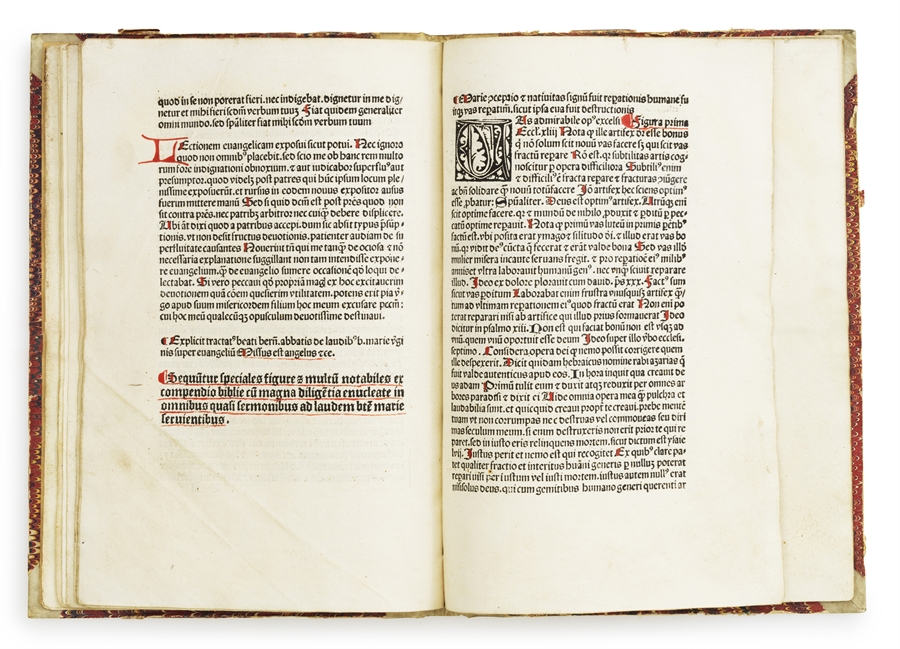 quod in se non poterat fieri. nec indigebat. dignetur in me dig/
netur et mihi fieri scdm verbum tuuz Fiat quidem generaliter
omni mundo. sed spāliter fiat mihi scdm verbum tuum
LEctionem euangelicam exposui sicut potui. Nec ignoro
quod non omnibꝰ placebit. sed scio me ob hanc rem multo
rum fore indignationi obnoxium. & aut iudicabor superfluꝰ aut
presumptor. quod videlꝫ post patres qui hūc ipsum locum ple/
nissime exposuerūt. et rursus in eodem nouus expositor ausus
fuerim mittere manū Sed si quid dcm̄ est post prēs quod non
sit contra prēs. nec patribꝫ arbitror nec cuiꝙ debere displicere.
Ubi āt dixi quod a patribus accepi. dum sic absit typus p̄sūp-
tionis. vt non desit fructus deuotionis. patienter audiam de su
perfluitate causantes Nouerint tn̄ qui me tanꝙ de ociosa & nō
necessaria explanatione suggillant non tam intendisse expone-
re euangelium. ꝙ de euangelio sumere occasionē qd̄ loqui de -
lectabat. Si vero peccaui qꝫ propriaꝫ magꝭ ex hoc excitauerim
deuotionem quā cōem quesierim vtilitatem. potens erit pia v̄g-
go apud suum misericordem filium hoc meum excusare pctm̄:
cui hoc meū qualecūqꝫ opusculum deuotissime destinaui.
¶Explicit tractatꝰ beati bern̄. abbatis de laudibꝰ b. marie v̄gi
nis super euangeliū Missus est angelus &c.
¶Sequūtur speciales figure & multū notabiles ex
compendio biblie cū magna diligētia enucleate in
omnibus quasi sermonibus ad laudem btē marie
seruientibus.
¶Marie ꝯcepcio & natiuitas signū fuit reꝑationis humane fu
iūqꝫ vas reꝑatm̄. sicut ipsa cua fuit destructionis
VAs admirabile opꝰ excelsi ¶Figura prima
Eccl. xliij Nota ꝙ ille artifex dr̄ esse bonus
q̄ nō solum scit nouū vas facere sꝫ qui scit vas
fractū reꝑare Rō est. qꝫ subtilitas artis cog-
noscitur ꝑ opera difficiliora Subtiliꝰ enim
& difficiliꝰ ē fracta reꝑare & fracturas ꝯiūgere
ac bn̄ solidare ꝙ nouū totū facere Iō artifex hec sciens optimꝰ
esse ꝓbatur: Spūaliter. Deus est optimꝰ artifex.
scit optime facere. qꝫ & mundū de nihilo ꝓduxit & ꝑditū ꝑ pec-
catū optime reꝑauit. Nota ꝙ primū vas luteū in primis ꝑētibꝰ
factū est. vbi posita erat ymago & silitudo dei. & illud erat vas bo
nū. qꝫ vidit deꝰ cūcta q̄ fecerat & erāt valde bona Sed vas illō
mulier misera incaute seruans fregit. & pro reꝑatiōe eiꝰ milibꝰ
annis et vltra laborauit humanū genꝰ. nec vnꝙ sciuit reparare
illud. Ideo ex dolore plorauit cum dauid. ps. xxx. Factꝰ sum
sicut vas ꝑditum Laborabat enim frustra vnusquisqꝫ artifex
tum ad vltimam reꝑationem eiꝰ quod fractū erat Non enī po
terat reparari nisi ab artifice qui illud prius formauerat Ideo
dicitur in psalmo xiij. Non est qui faciat bonū non est vsqꝫ ad
vnū. quem vnū oportuit esse deum Ideo super illo v̄bo ecclesi.
septimo. Considera opera dei ꝙ nemo possit corrigere quem
ille despexerit. Dicit quidam hebraicus nomine rabi azarias ꝙ
fuit valde autenticus apud eos. In hora inquit qua creauit de
us adam Primū tulit eum & duxit atqꝫ reduxit per omnes ar
bores paradisi & dixit ei Vide omnia opera mea ꝙ pulchra et
laudabilia sunt. et quicquid creaui propt̄ te creaui. prebe mentē
tuam vt non corrumpas nec destruas vel commoueas seu diri
mas seculum meum. si enim destruxeris non erit prior te qui re
paret. sed in iusto eris relinquens mortem. sicut dictum est ysaie
lvij. Iustus perit et nemo est qui recogitet Ex quibꝰ clare pa-
tet qualiter fractio et interitus hūani generis ꝑ nulluꝫ poterat
reꝑari nisi ꝑer iustum vel iusti mortem. iustus autem nullꝰ erat
nisi solus deus. qui cum gemitibus humano generi querenti ar